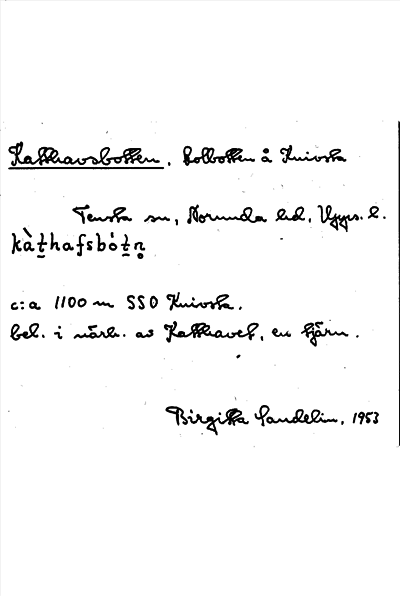 Katthavsbotten, kolbotten å Knivsta
Tensta sn, Norunda hd, Upps. l.
kàt̲hafsbót̲n̥
c:a 1100 m SSO Knivsta.
bel. i närh. av Katthavet, en tjärn.
Birgitta Sandelin, 1953